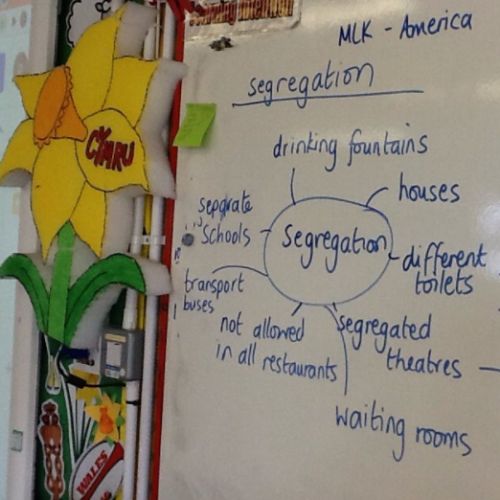 MLK - America
segregation
drinking fountains
houses
CYMRU
separate
schools
segregation
different
toilets
transport
buses
not allowed
in all restaurants
segregated
theatres
waiting rooms
WALES